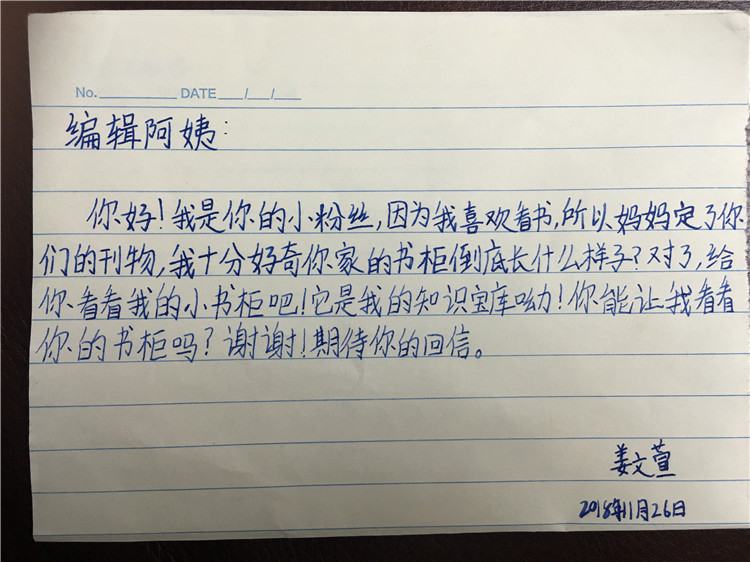 No.________ DATE___/___/___
编辑阿姨:
你好!我是你的小粉丝,因为我喜欢看书,所以妈妈定了你
们的刊物,我十分好奇你家的书柜倒底长什么样子?对了,给
你看看我的小书柜吧!它是我的知识宝库呦!你能让我看看
你的书柜吗?谢谢!期待你的回信。
姜文萱
2018年11月26日